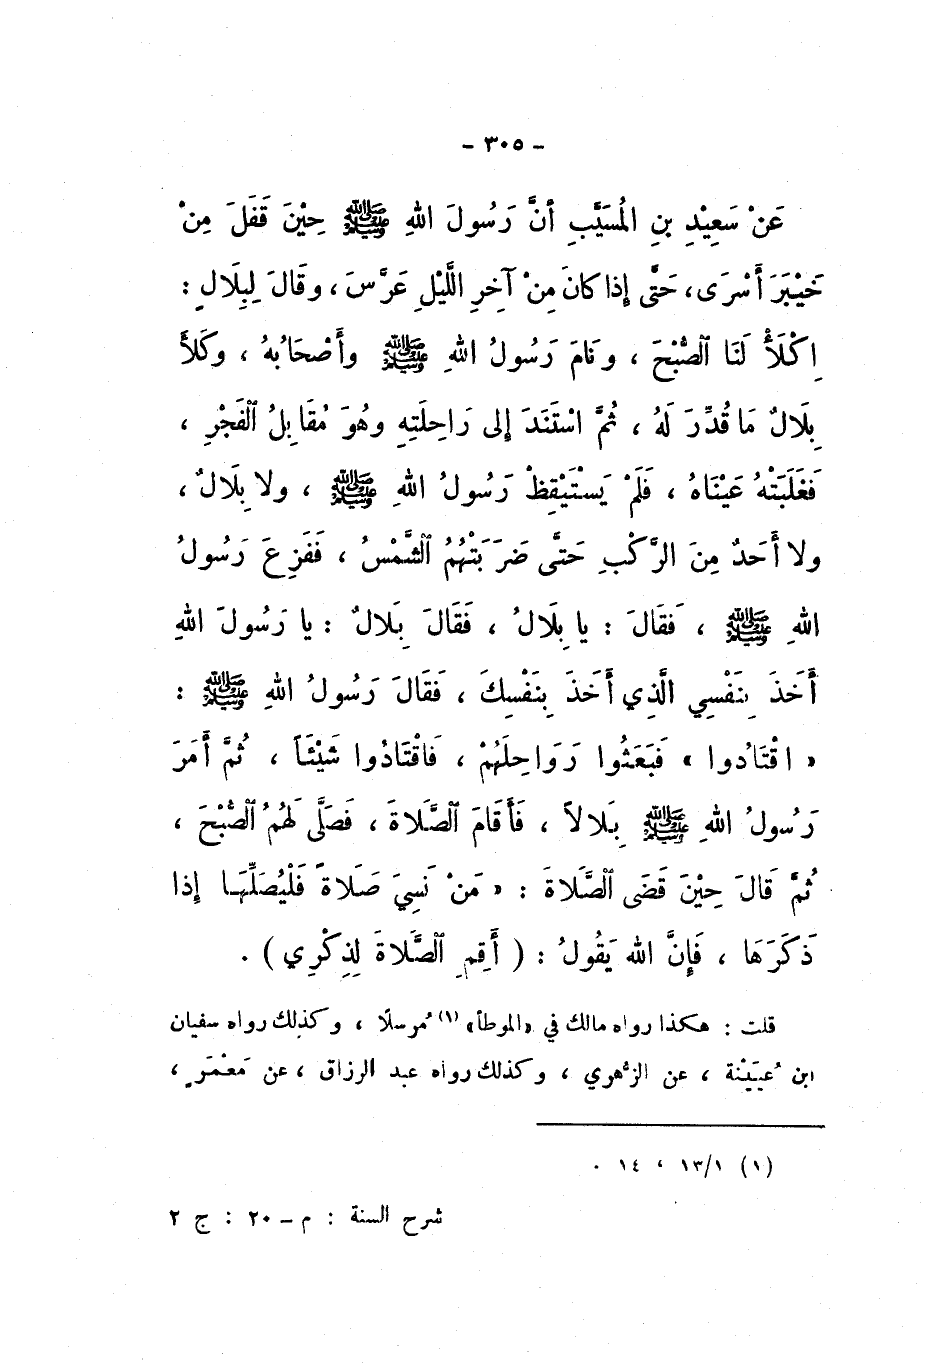 - ٣٠٥ -
عَنْ سَعِيْدِ بنِ المُسَيَّبِ أنَّ رَسُولَ اللهِ ﷺ حِيْنَ قَفَلَ مِنْ
خَيْبَرَ أَسْرَى، حَتَّى إذا كانَ مِنْ آخِرِ اللَّيْلِ عَرَّسَ، وقَالَ لِبِلَالٍ :
اِكْلَأْ لَنَا الصُّبْحَ ، ونَامَ رَسُولُ اللهِ ﷺ وأَصْحَابُهُ ، وكَلأَ
بِلَالٌ مَا قُدِّرَ لَهُ ، ثُمَّ اسْتَنَدَ إلى رَاحِلَتِهِ وهُوَ مُقَابِلُ الْفَجْرِ ،
فَغَلَبَتْهُ عَيْنَاهُ ، فَلَمْ يَسْتَيْقِظْ رَسُولُ اللهِ ﷺ ، ولا بِلَالٌ ،
ولا أَحَدٌ مِنَ الرَّكْبِ حَتَّى ضَرَبَتْهُمُ الشَّمْسُ ، فَفَزِعَ رَسُولُ
اللهِ ﷺ ، فَقَالَ : يا بِلَالُ ، فَقَالَ بِلَالٌ : يا رَسُولَ اللهِ
أَخَذَ بِنَفْسِي الَّذِي أَخَذَ بِنَفْسِكَ ، فَقَالَ رَسُولُ اللهِ ﷺ :
« اقْتَادُوا » فَبَعَثُوا رَوَاحِلَهُمْ ، فَاقْتَادُوا شَيْئَاً ، ثُمَّ أَمَرَ
رَسُولُ اللهِ ﷺ بِلَالاً ، فَأَقَامَ الصَّلَاةَ ، فَصَلَّى لَهُمُ الصُّبْحَ ،
ثُمَّ قَالَ حِيْنَ قَضَى الصَّلَاةَ : « مَنْ نَسِيَ صَلَاةً فَلْيُصَلِّهَا إذا
ذَكَرَهَا ، فَإِنَّ الله يَقُولُ : ( أَقِمِ الصَّلَاةَ لِذِكْرِي ) .
قلت : هكذا رواه مالك في «الموطأ» (١) مُرسلًا ، وكذلك رواه سفيان
ابن عُيَيْنة ، عن الزُّهري ، وكذلك رواه عبد الرزاق ، عن مَعْمَرٍ ،
(١) ١٣/١ ، ١٤ .
شرح السنة : م - ٢٠ : ج ٢